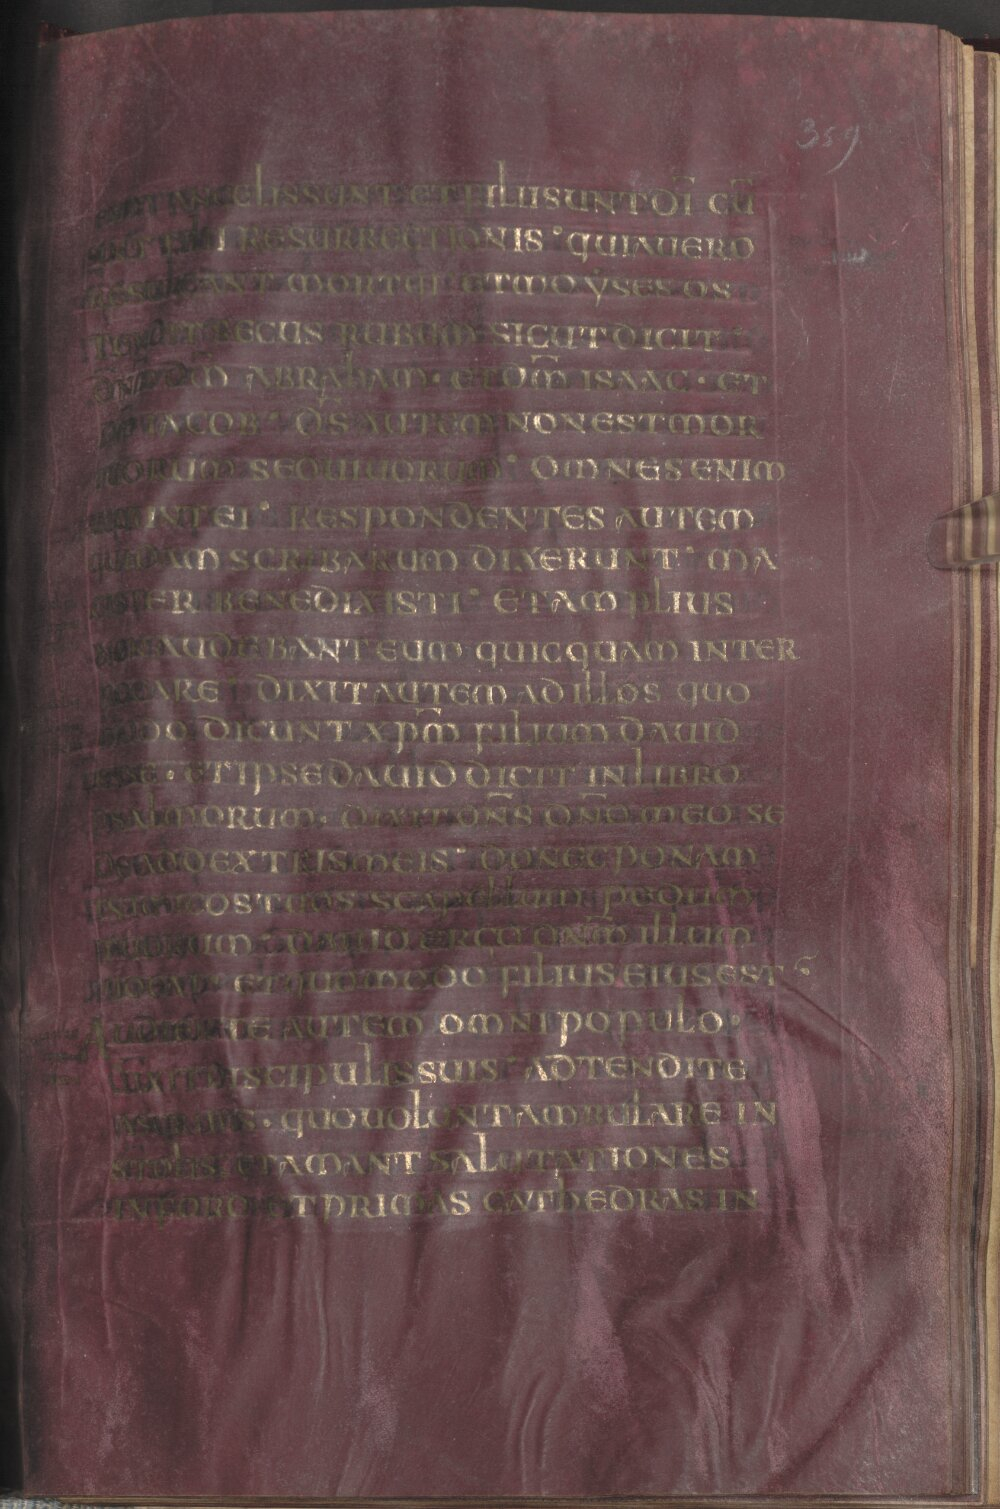 359
ANGELIS SUNT ET FILII SUNT DĪ CŪ
RESURRECTIONIS · QUIA UERO
MORTUI ET MOYSES OS
SECUS RUBUM SICUT DICIT
DM̄ ABRAHAM · ET DM̄ ISAAC · ET
IACOB · DS̄ AUTEM NON EST MOR
TUORUM SED UIUORUM · OMNES ENIM
UIUUNT EI · RESPONDENTES AUTEM
QUIDAM SCRIBARUM DIXERUNT · MA
GISTER BENEDIXISTI · ET AMPLIUS
NON AUDEBANT EUM QUICQUAM INTER
ROGARE · DIXIT AUTEM AD ILLOS QUO
MODO DICUNT XPM̄ FILIUM DAUID
ESSE · ET IPSE DAUID DICIT IN LIBRO
PSALMORUM · DIXIT DN̄S DN̄O MEO SE
DE A DEXTRIS MEIS · DONEC PONAM
INIMICOS TUOS SCABELLUM PEDUM
TUORUM · DAUID ERGO DN̄M ILLUM
UOCAT ET QUOMODO FILIUS EIUS EST
AUDIENTE AUTEM OMNI POPULO
DIXIT DISCIPULIS SUIS · ADTENDITE
A SCRIBIS · QUI UOLUNT AMBULARE IN
STOLIS ET AMANT SALUTATIONES
IN FORO ET PRIMAS CATHEDRAS IN